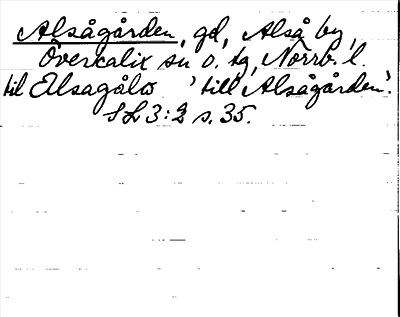 Alsågården, gd, Alså by,
Överkalix sn o. tg, Norrb. l.
til Elsagålo 'till Alsågården'.
SL 3:2 s. 35.